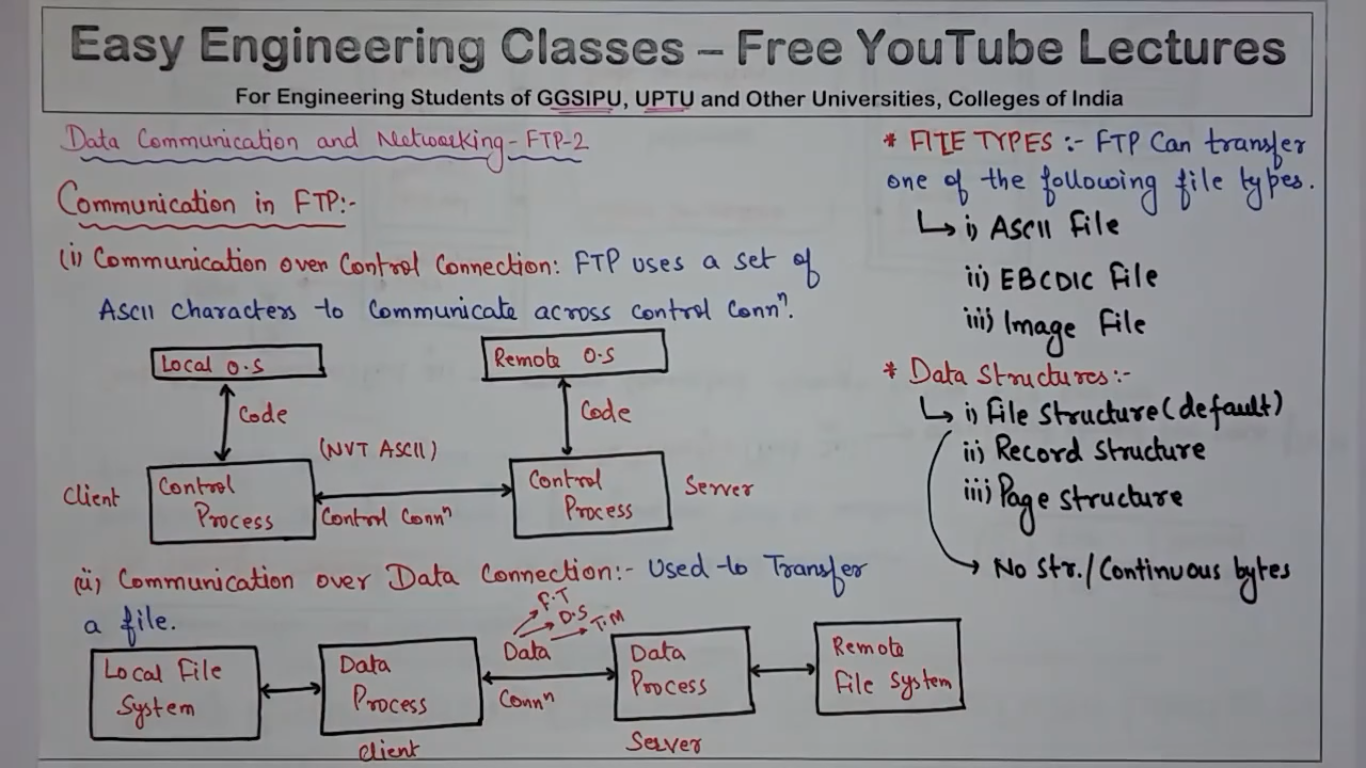 Easy Engineering Classes – Free YouTube Lectures
For Engineering Students of GGSIPU, UPTU and Other Universities, Colleges of India
Data Communication and Networking - FTP-2
Communication in FTP:-
(i) Communication over Control Connection: FTP uses a set of
ASCII characters to Communicate across control Connⁿ.
Local O.S
Remote O.S
Code
Code
(NVT ASCII)
Client
Control
Process
Control Connⁿ
Control
Process
Server
(ii) Communication over Data Connection:- Used to Transfer
a file.
F.T
D.S
T.M
Local File
System
Data
Process
Client
Data
Connⁿ
Data
Process
Server
Remote
File System
* FILE TYPES :- FTP Can transfer
one of the following file types.
↳ i) ASCII File
ii) EBCDIC File
iii) Image File
* Data Structures:-
↳ i) File Structure (default)
ii) Record Structure
iii) Page Structure
→ No Str./Continuous bytes